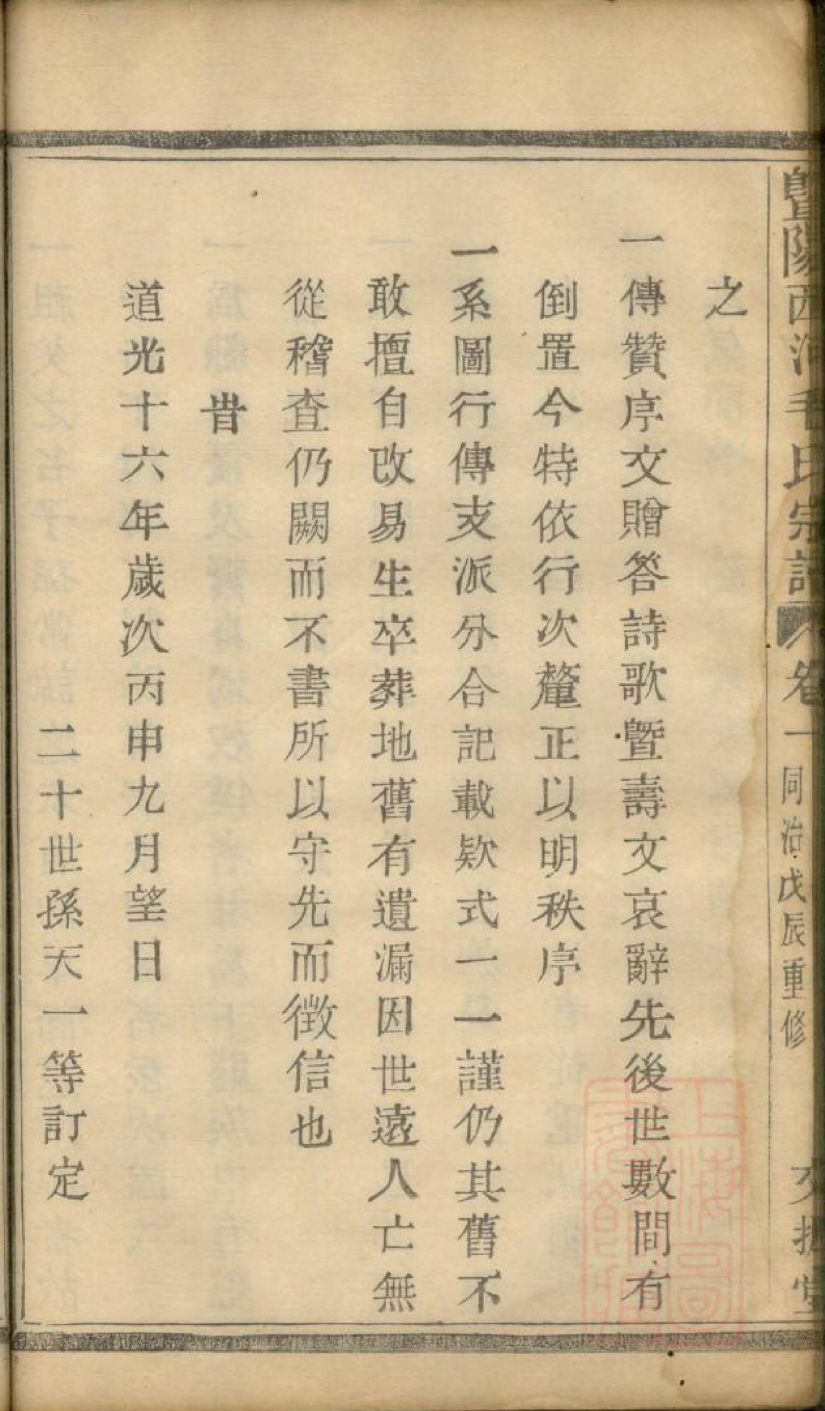 暨陽西河毛氏宗譜 卷一 同治戊辰重修
之
一傳贊序文贈答詩歌暨壽文哀辭先後世數間有
倒置今特依行次釐正以明秩序
一系圖行傳支派分合記載欵式一一謹仍其舊不
敢擅自改易生卒葬地舊有遺漏因世遠人亡無
從稽查仍闕而不書所以守先而徵信也
旹
道光十六年歲次丙申九月望日
二十世孫天一等訂定